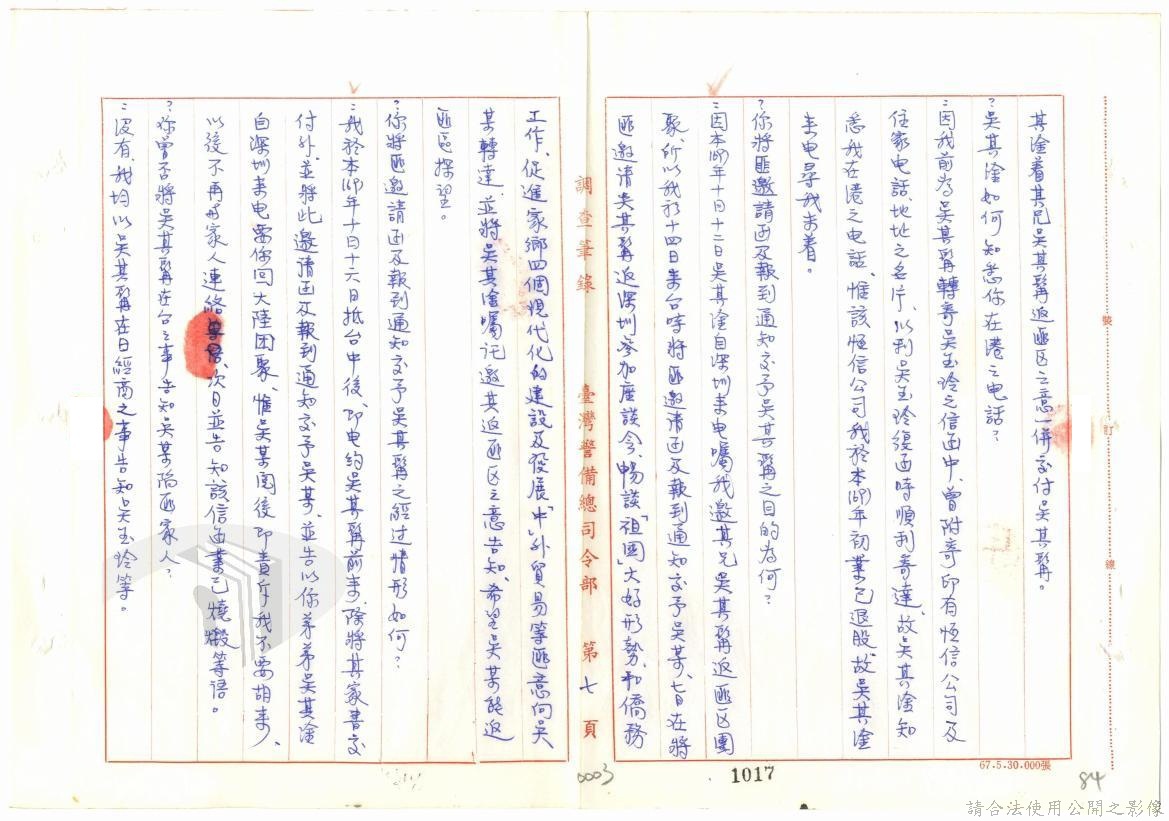 其塗着其兄吳其髯返匪区之意一併交付吳其髯。
?吳其塗如何知悉你在港之电話?
:因我前為吳其髯轉寄吳玉玲之信函中,曾附寄印有恆信公司及
住家电話、地址之名片,以利吳玉玲復函時順利寄達,故吳其塗知
悉我在港之电話、惟該恆信公司我於本(69)年初業已退股,故吳其塗
来电尋我未着。
?你將匪邀請函及報到通知交予吳其髯之目的為何?
:因本(69)年十月十二日吳其塗自深圳来电囑我邀其兄吳其髯返匪区團
聚,所以我於十四日来台時將匪邀請函及報到通知交予吳某,七日在將
匪邀請吳其髯返深圳參加座談会,暢談「祖國」大好形勢,和僑務
調查筆錄 臺灣警備總司令部 第七頁
工作、促進家鄉四個現代化的建設及發展「中」外貿易等匪意向吳
某轉達,並將吳其塗囑託邀其返匪区之意告知、希望吳某能返
匪區探望。
?你將匪邀請函及報到通知交予吳其髯之經过情形如何?
:我於本(69)年十月十六日抵台中後,即电約吳其髯前来,除將其家書交
付外,並將此邀請函及報到通知交予吳某、並告以你弟弟吳其塗
自深圳来电要你回大陸團聚,惟吳某閱後即責斥我不要胡来,
以後不再與家人連絡等語,次日並告知該信函業已燒燬等語。
?你曾否將吳其髯在台之事告知吳某陷匪家人?
:沒有,我均以吳其髯在日經商之事告知吳玉玲等。
裝
訂
線
67.5.30.000張
0003
1017
84
請合法使用公開之影像